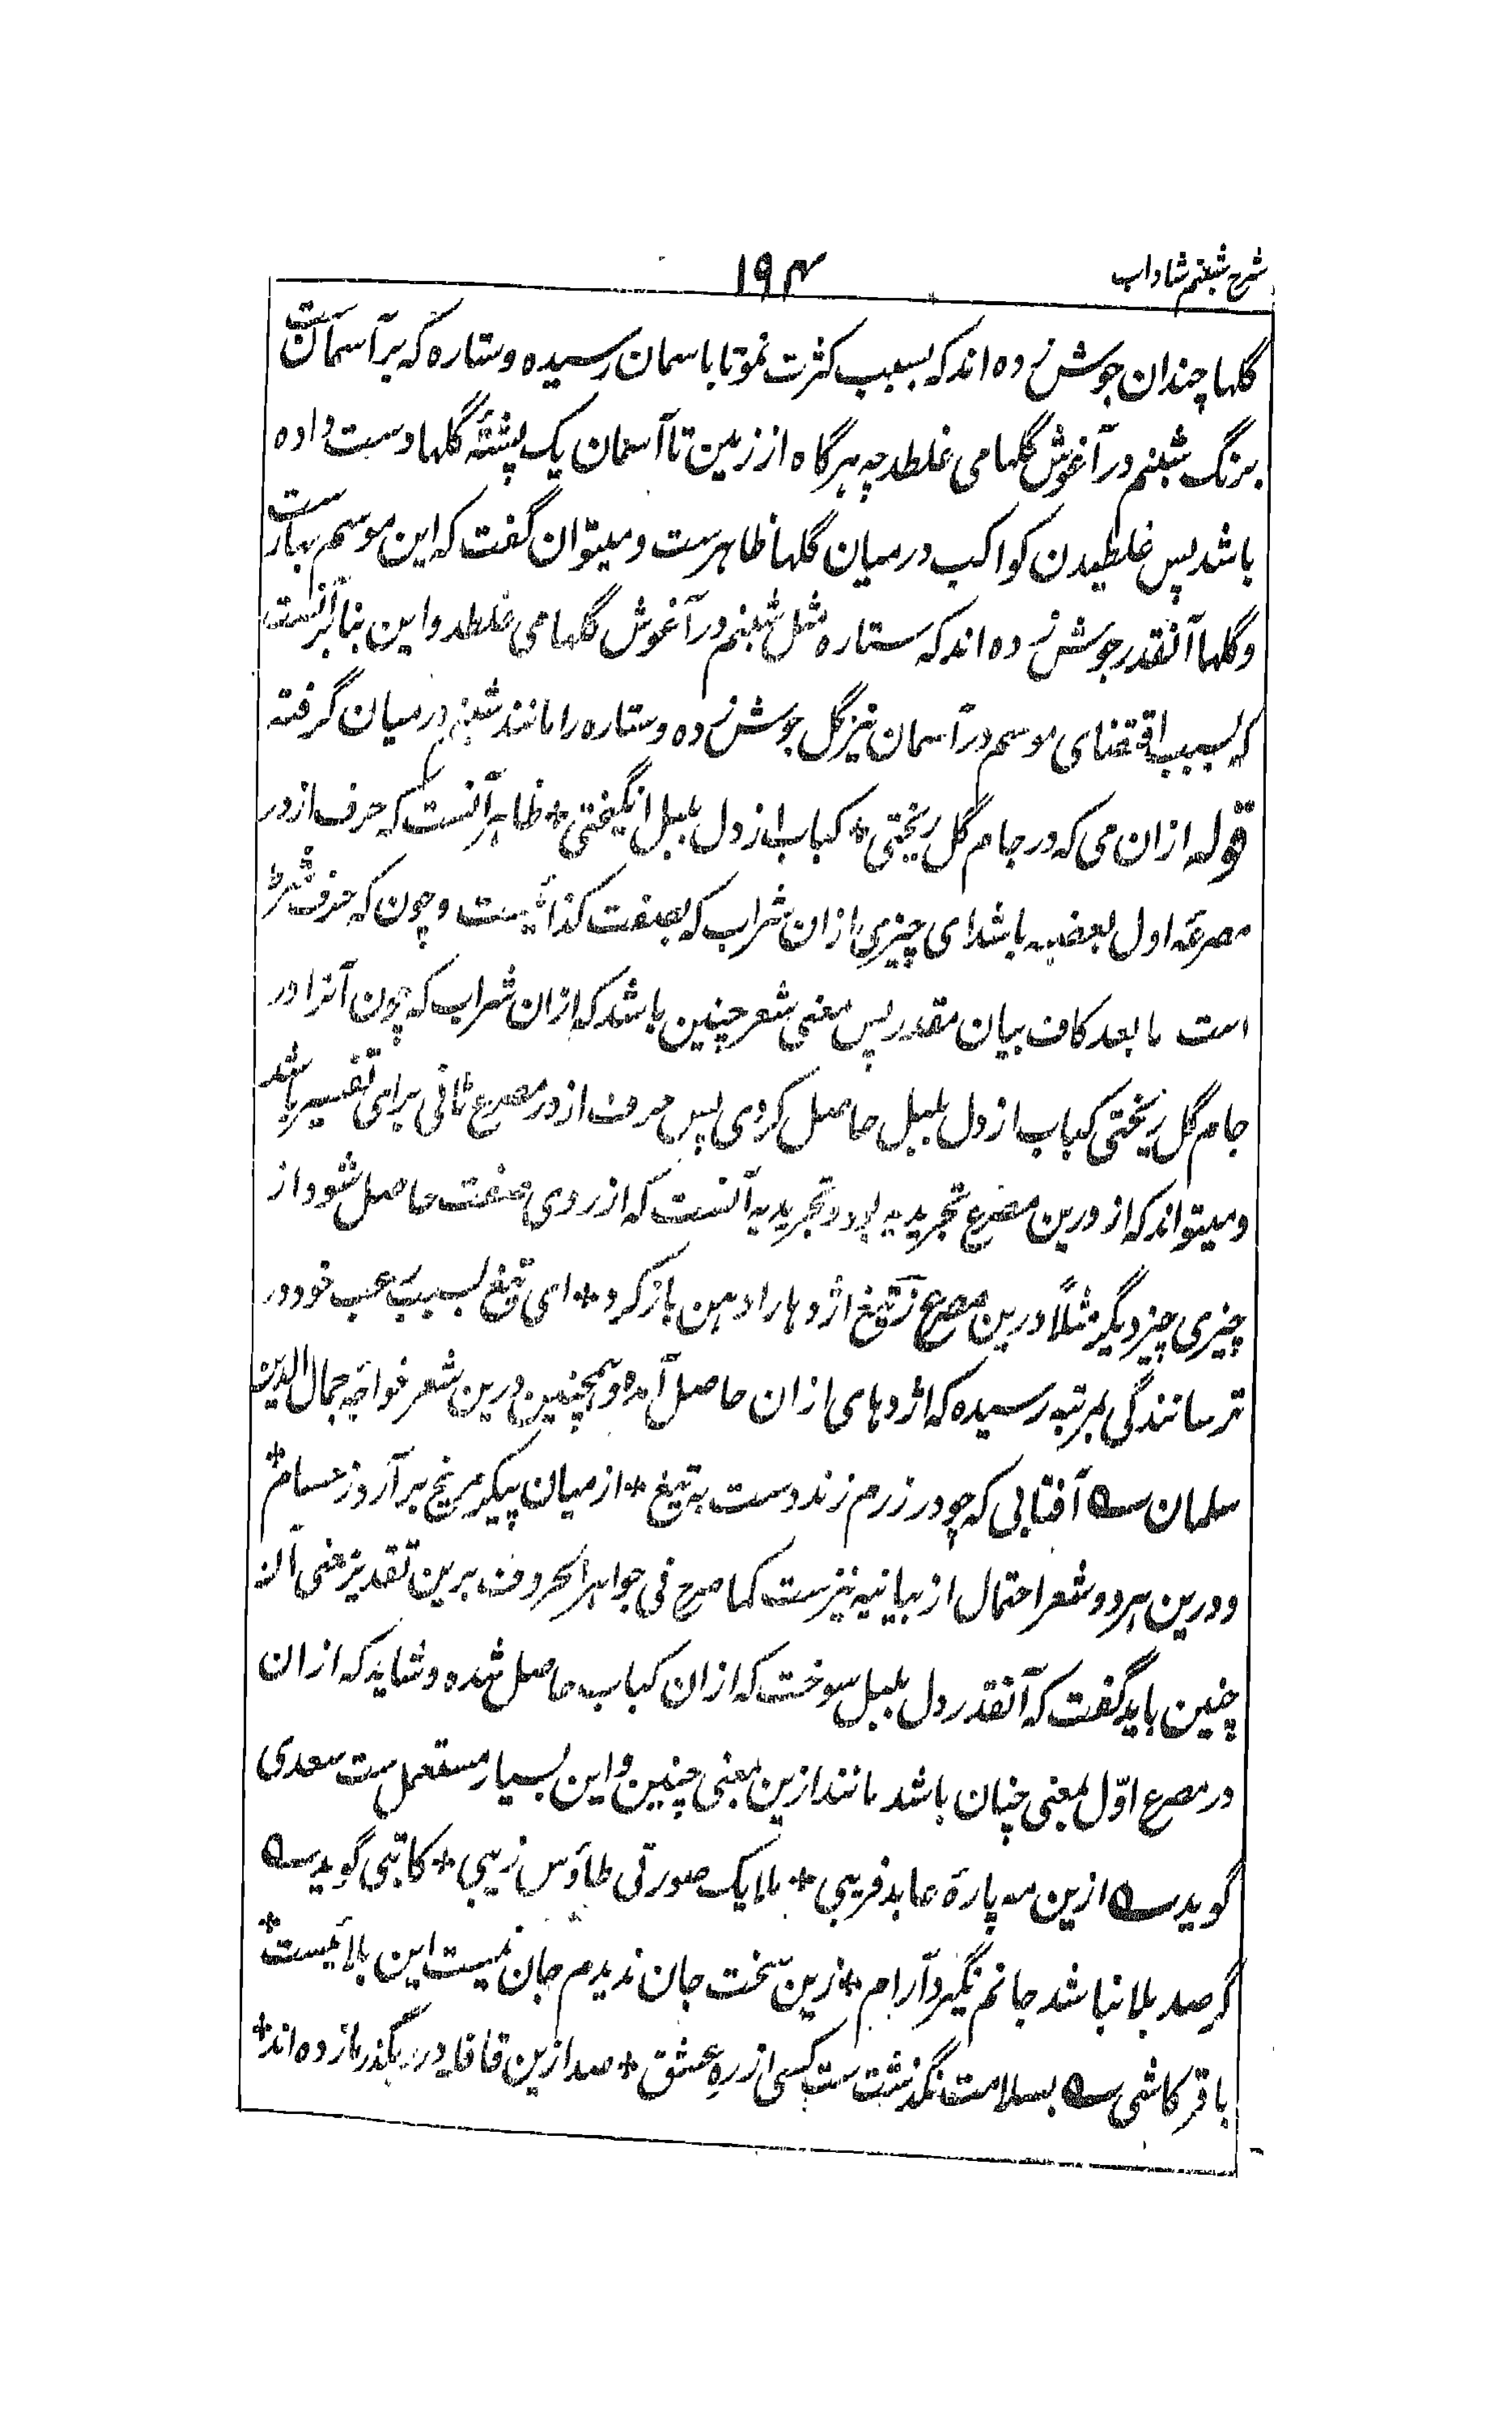 شرح شبنم شاداب
۱۹۴
گلها چندان جوش زده اند که بسبب کثرت نمو تا باسمان رسیده و ستاره که بر آسمان ست
برنگ شبنم در آغوش گلها می غلطد چه هرگاه از زمین تا آسمان یک پشتهٔ گلها دست داده
باشد پس غلطیدن کواکب درمیان گلها ظاهرست و میتوان گفت که این موسم بهارست
و گلها آنقدر جوش زده اند که ستاره مثل شبنم در آغوش گلها می غلطد و این بنا بر آنست
که بسبب اقتضای موسم در آسمان نیز گل جوش زده و ستاره را مانند شبنم درمیان گرفته
قوله ازان می که در جام گل ریختی * کباب از دل بلبل انگیختی * ظاهر آنست که حرف از در
مصرعه اول بعضیه باشد ای چیزی ازان شراب که بصفت کذائیست و چون که حرف شرط
است ما بعد کاف بیان مقدر پس معنی شعر چنین باشد که ازان شراب که چون آنرا در
جام گل ریختی کباب از دل بلبل حاصل کردی پس حرف از در مصرع ثانی برای تفسیر باشد
و میتواند که از درین مصرع تجریدیه بود و تجریدیه آنست که از روی صفت حاصل شود از
چیزی چیز دیگر مثلاً درین مصرع ز تیغ اژدها را دهن باز کرد * ای تیغ بسبب رعب خود در
ترسانندگی بمرتبه رسیده که اژدهای ازان حاصل آمده و همچنین درین شعر خواجه جمال الدین
سلمان ؎ آفتابی که چو در رزم زند دست به تیغ * از میان پیکر مریخ بر آرد ز حسام *
و درین هر دو شعر احتمال از بیانیه نیزست کما صرح فی جواهر الحروف برین تقدیر معنی آن
چنین باید گفت که آنقدر دل بلبل سوخت که ازان کباب حاصل شده و شاید که ازان
در مصرع اوّل بمعنی چنان باشد مانند ازین بمعنی چنین و این بسیار مستعمل ست سعدی
گوید ؎ ازین مه پارهٔ عابد فریبی * ملایک صورتی طاؤس زیبی * کاتبی گوید ؎
گر صد بلا نباشد جانم نگیرد آرام * زین سخت جان ندیدم جان نیست این بلائیست *
باقر کاشی ؎ بسلامت نگذشت ست کسی از ره عشق * صد ازین قافله در رهگذر ما زده اند *